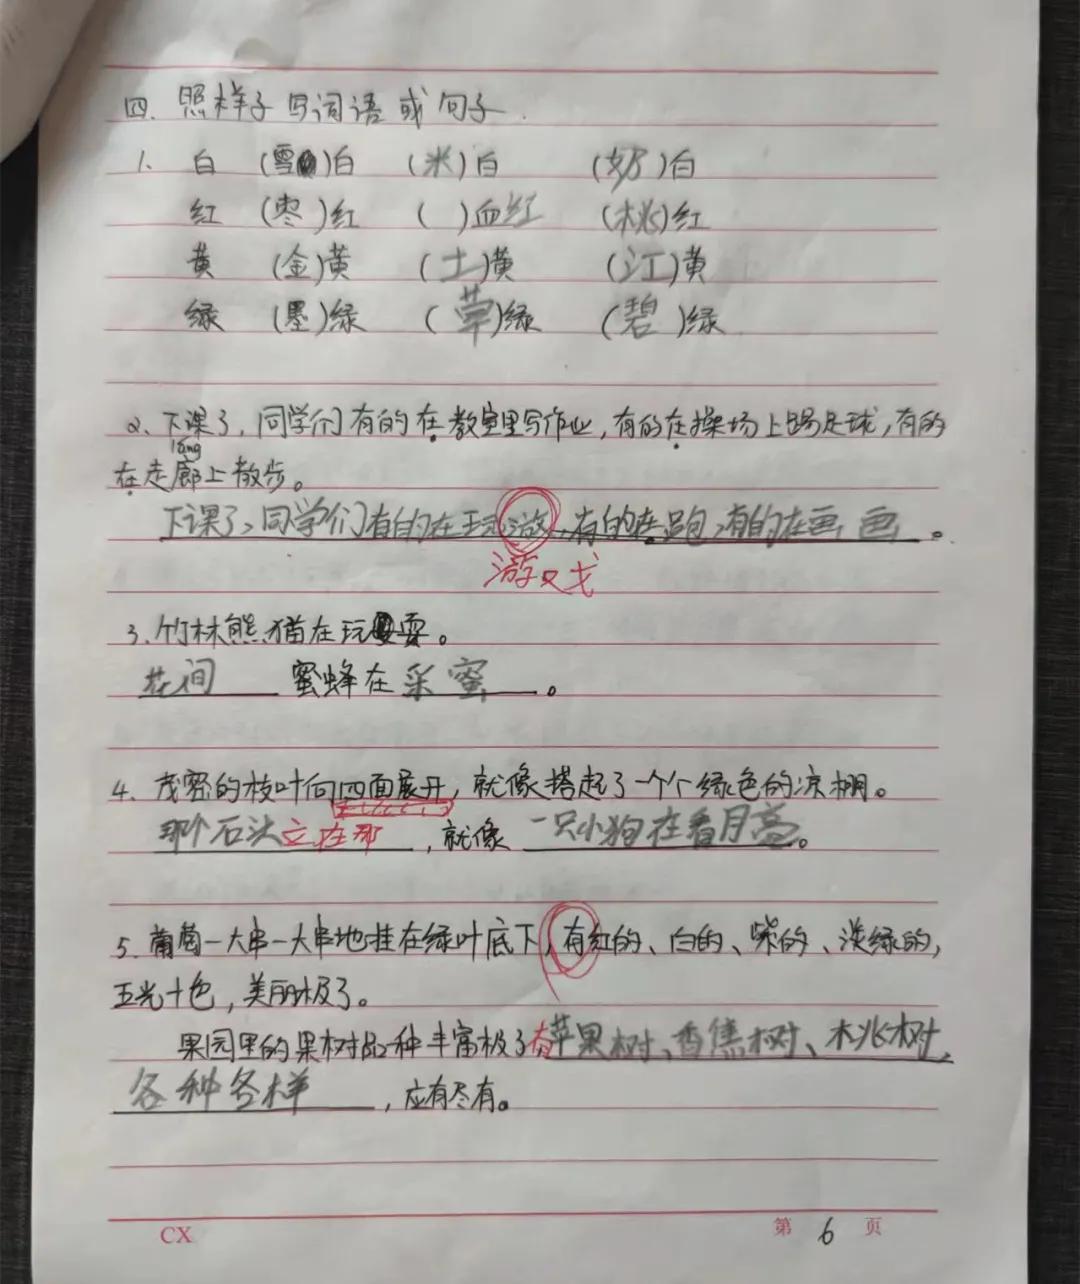 四、照样子写词语或句子.
1、白 (雪)白 (米)白 (奶)白
红 (枣)红 ( )血红 (桃)红
黄 (金)黄 (土)黄 (江)黄
绿 (墨)绿 (草)绿 (碧)绿
2、下课了，同学们有的在教室里写作业，有的在操场上踢足球，有的
láng
在走廊上散步。
下课了，同学们有的在玩游，有的在跑，有的在画画。
游戏
3、竹林熊猫在玩耍。
花间 蜜蜂在采蜜。
4、茂密的枝叶向四面展开，就像搭起了一个个绿色的凉棚。
那个石头立在那，就像一只小狗在看月亮。
5、葡萄一大串一大串地挂在绿叶底下，有红的、白的、紫的、淡绿的，
五光十色，美丽极了。
果园里的果树品种丰富极了有苹果树、香焦树、桃树，
各种各样，应有尽有。
CX 第 6 页